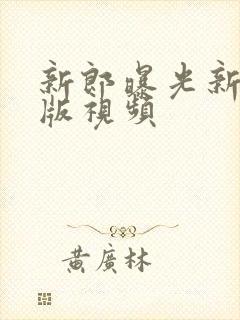 新郎曝光新
版視頻
黃廣林